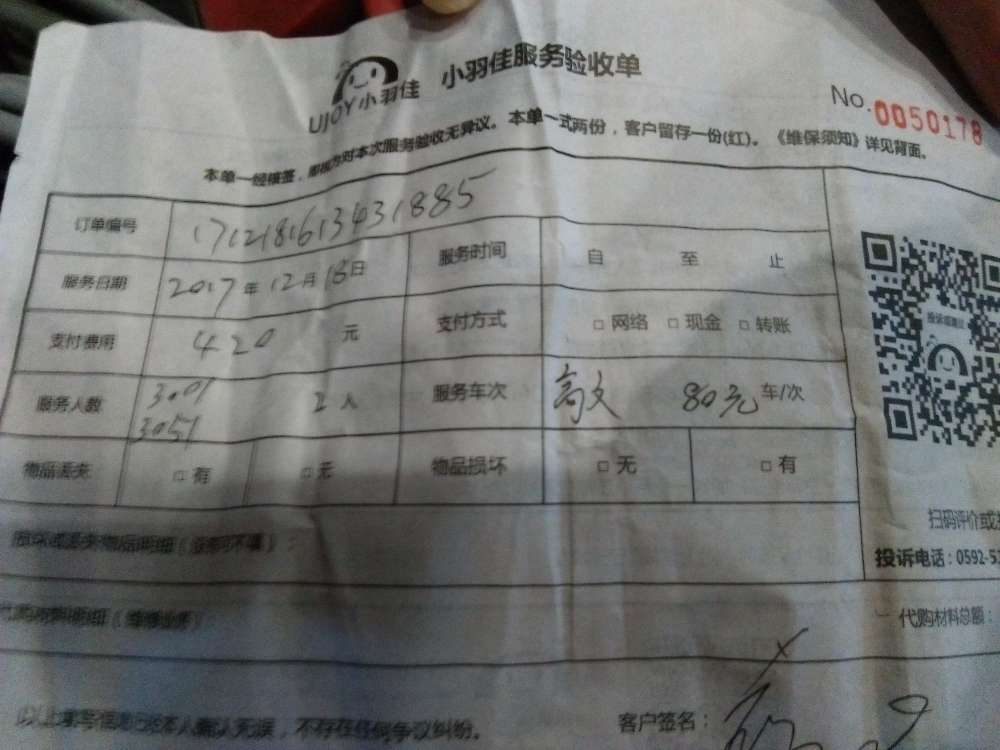 UJOY小羽佳 小羽佳服务验收单
No.0050178
本单一经核签，即视为对本次服务验收无异议。本单一式两份，客户留存一份(红)。《维保须知》详见背面。
订单编号 1712181613431885
服务日期 2017年12月18日 服务时间 自 至 止
支付费用 420 元 支付方式 □网络 □现金 □转账
服务人数 3001 3051 2人 服务车次 80元 车/次
物品丢失 □有 □无 物品损坏 □无 □有
扫码评价或
投诉电话：0592-5
代购材料总额：
以上填写信息已经本人确认无误，不存在任何争议纠纷。 客户签名：